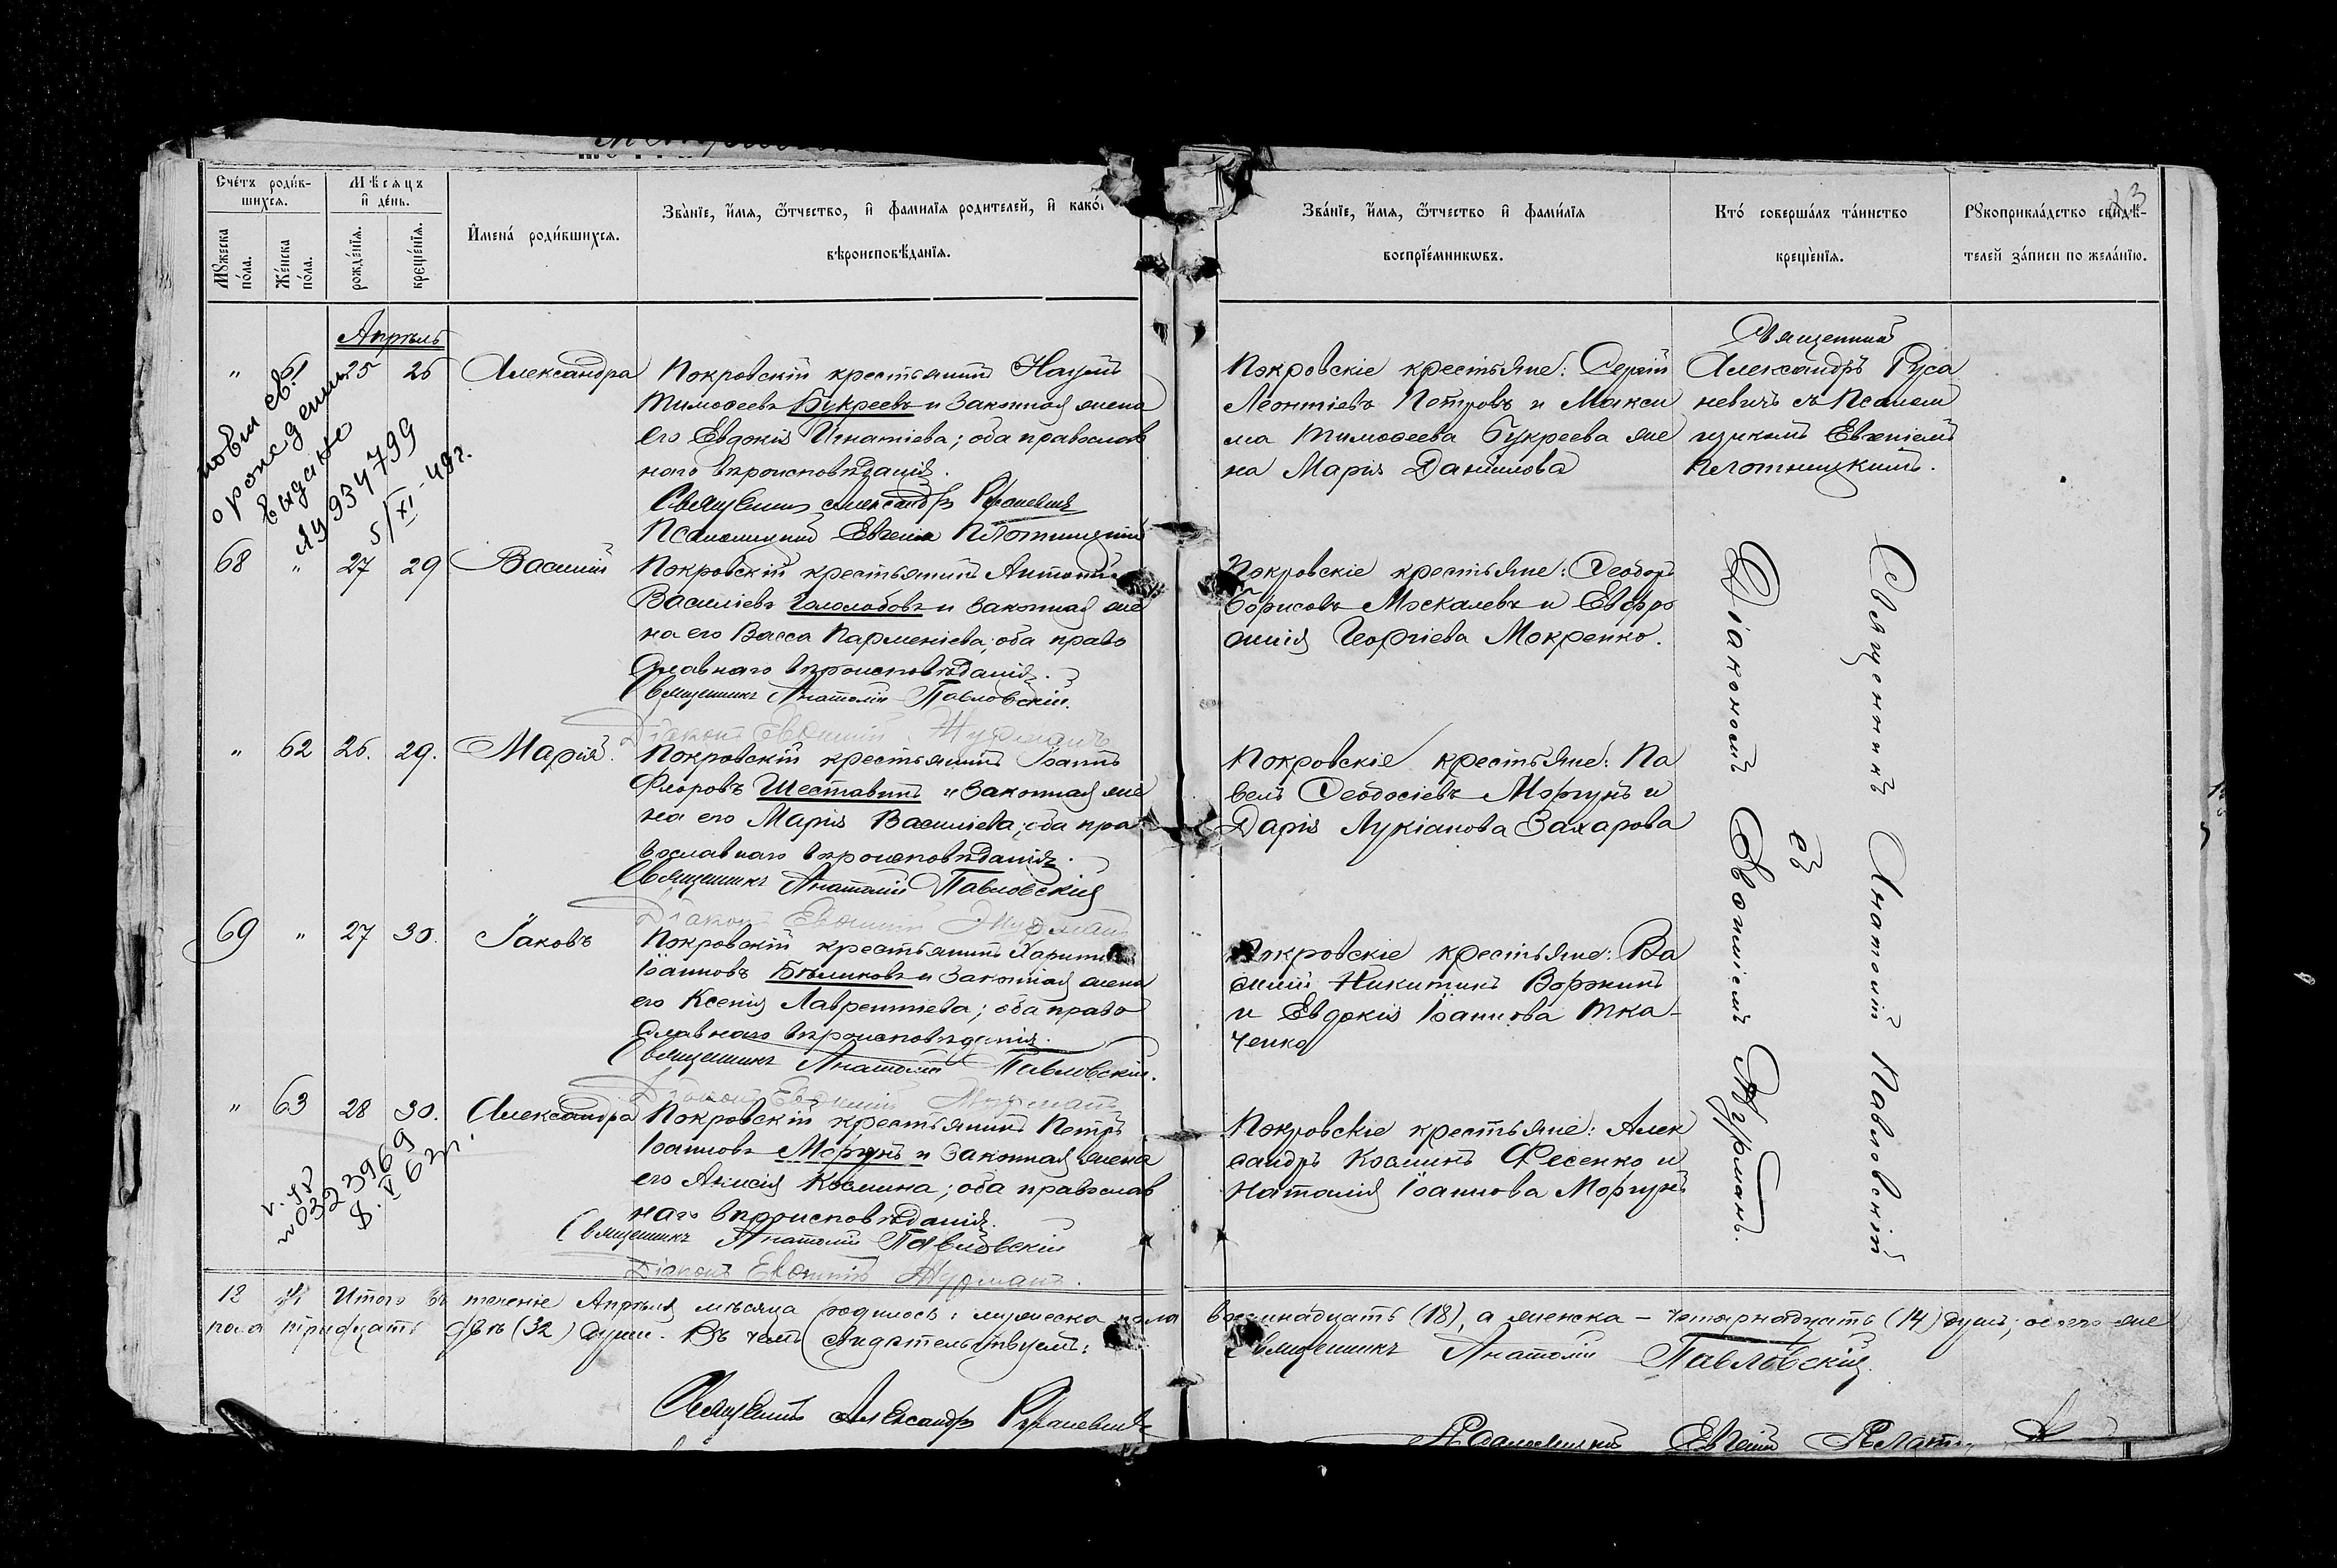 Счетъ родив-
шихся.
Мѣсяцъ
и день.
Мужеска
пола.
Женска
пола.
рожденія.
крещенія.
Имена родившихся.
Званіе, имя, отчество, и фамилія родителей, и како
вѣроисповѣданія.
Званіе, имя, отчество и фамилія
воспріемниковъ.
Кто совершалъ таинство
крещенія.
Рукоприкладство свидѣ-
телей записи по желанію.
23
Апрѣль
" 61 25 26 Александра
Покровскій крестьянинъ Наумъ
Тимофеевъ Букреевъ и законная жена
его Евдокія Игнатіева; оба православ
наго вѣроисповѣданія.
Священникъ Александръ Русаневичъ
Псаломщикъ Евгеній Плотницкій
Покровскіе крестьяне: Сергій
Леонтіевъ Петровъ и Макси
ма Тимофеева Букреева же
на Марія Даніилова
Священникъ
Александръ Руса
невичъ съ Псалом
щикомъ Евгеніемъ
Плотницкимъ.
новы св.
о рождении
выдано
ЯУ 934799
5/XI-48г.
68 " 27 29 Василій
Покровскій крестьянинъ Антоній
Василіевъ Гололобовъ и законная же
на его Васса Парменіева; оба право
славнаго вѣроисповѣданія.
Священникъ Анатолій Павловскій.
Діаконъ Евфимій Журманъ
Покровскіе крестьяне: Феодоръ
Борисовъ Москалевъ и Евфро
синія Георгіева Мокренко.
Священникъ Анатолій Павловскій
съ
Діакономъ Евфиміемъ Журманъ.
" 62 26. 29. Марія.
Покровскій крестьянинъ Іоаннъ
Флоровъ Шеставинъ и законная же
на его Марія Василіева; оба пра
вославнаго вѣроисповѣданія.
Священникъ Анатолій Павловскій
Діаконъ Евфимій Журманъ
Покровскіе крестьяне: Па
велъ Феодосіевъ Моргунъ и
Дарія Лукіанова Захарова
69 " 27 30. Іаковъ
Покровскій крестьянинъ Харитонъ
Іоанновъ Бѣликовъ и законная жена
его Ксенія Лаврентіева; оба право
славнаго вѣроисповѣданія.
Священникъ Анатолій Павловскій.
Діаконъ Евфимій Журманъ
Покровскіе крестьяне: Ва
силій Никитинъ Воржинъ
и Евдокія Іоаннова Тка-
ченко
" 63 28 30. Александра
Покровскій крестьянинъ Петръ
Іоанновъ Моргунъ и законная жена
его Анисія Космина; оба православ
наго вѣроисповѣданія.
Священникъ Анатолій Павловскій
Діаконъ Евфимій Журманъ.
Покровскіе крестьяне: Алек
сандръ Косминъ Фесенко и
Наталія Іоаннова Моргунъ
№ 0323969
8.V 62г.
18 14 Итого въ теченіе Апрѣля мѣсяца родилось: мужеска пола восемнадцать (18), а женска – четырнадцать (14) душъ; обоего же
пола тридцать двѣ (32) души. Въ чемъ свидѣтельствуемъ:
Священникъ Анатолій Павловскій.
Священникъ Александръ Русаневичъ
Псаломщикъ Евгеній